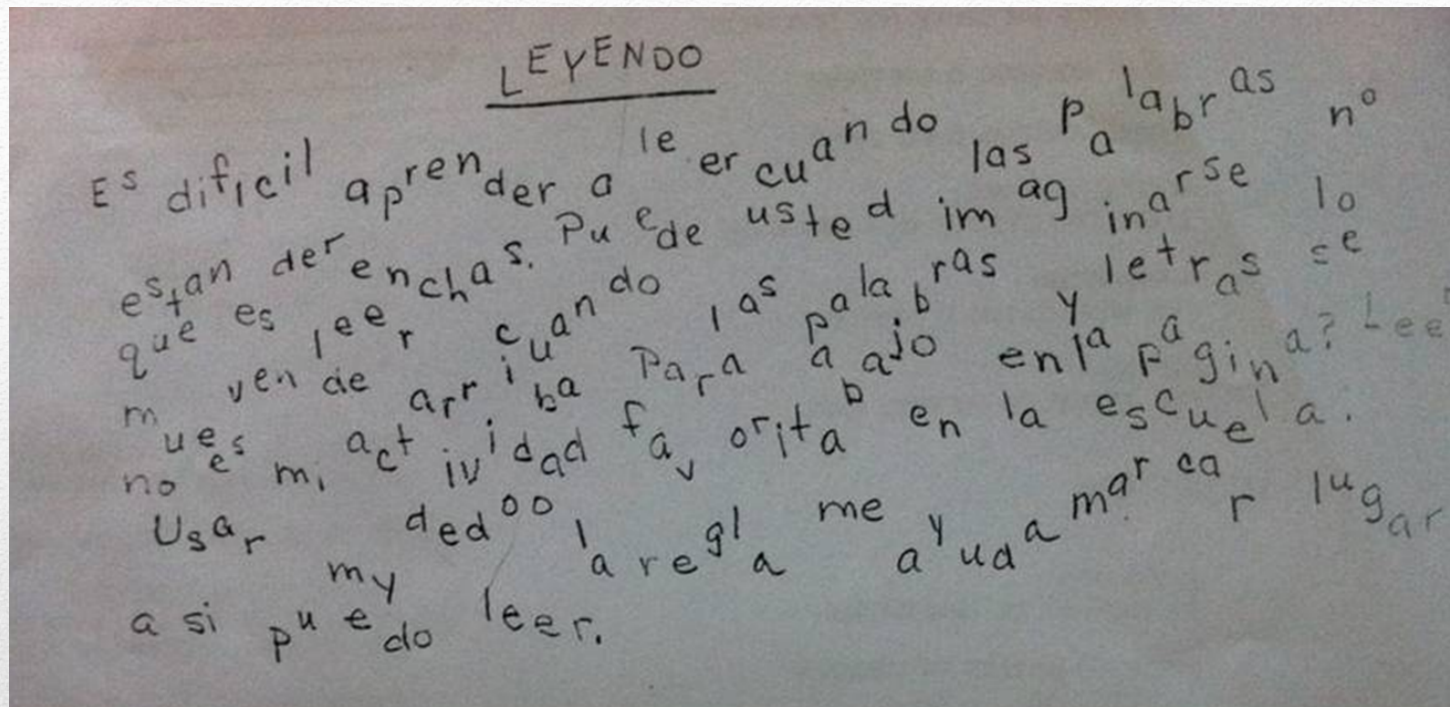 LEYENDO
Es dificil aprender a leer cuando las palabras no
estan derenchas. Puede usted imaginarse lo
que es leer cuando las palabras y letras se
mueven de arriba Para aabajo en la pagina? Lee
no es mi actividad favorita en la escuela.
Usar my dedo o la regla me ayuda a marcar lugar
asi puedo leer.